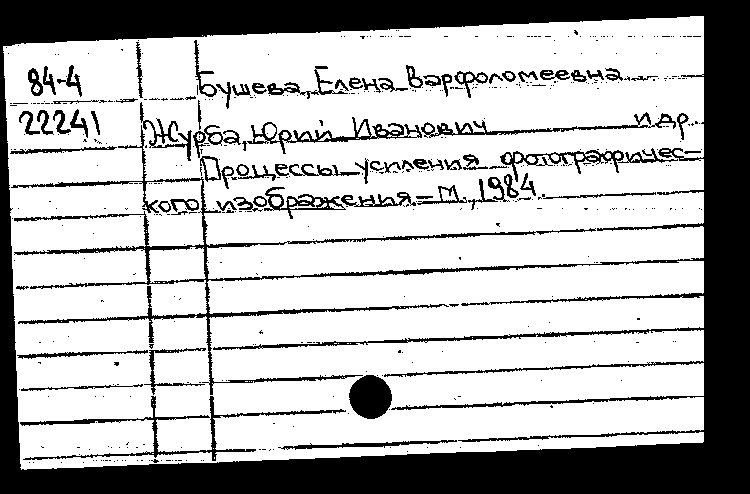 84-4 Бушева, Елена Варфоломеевна
22241 Журба, Юрий Иванович и др.
Процессы усиления фотографичес-
кого изображения. – М., 1984.